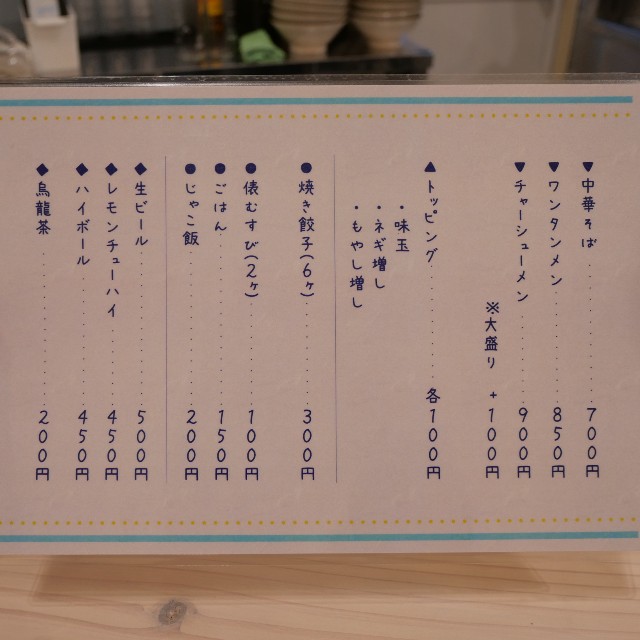 ▼中華そば‥‥‥‥700円
▼ワンタンメン‥‥‥‥850円
▼チャーシューメン‥‥‥‥900円
※大盛り +100円
▲トッピング‥‥‥‥各100円
・味玉
・ネギ増し
・もやし増し
●焼き餃子(6ヶ)‥‥‥‥300円
●俵むすび(2ヶ)‥‥‥‥100円
●ごはん‥‥‥‥150円
●じゃこ飯‥‥‥‥200円
◆生ビール‥‥‥‥500円
◆レモンチューハイ‥‥‥‥450円
◆ハイボール‥‥‥‥450円
◆烏龍茶‥‥‥‥200円